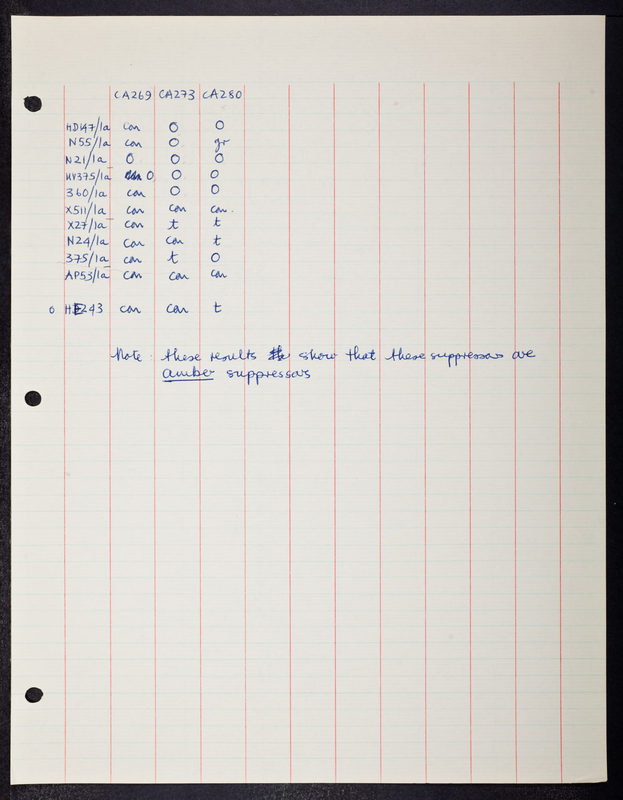 CA269 CA273 CA280
HD147/1a con O O
N55/1a con O gr
N21/1a O O O
O O O
360/1a con O O
X511/1a con con con.
X27/1a con t t
N24/1a con con t
375/1a con t O
AP53/1a con con con
O con con t
Note : these results show that these suppressors are
amber suppressors